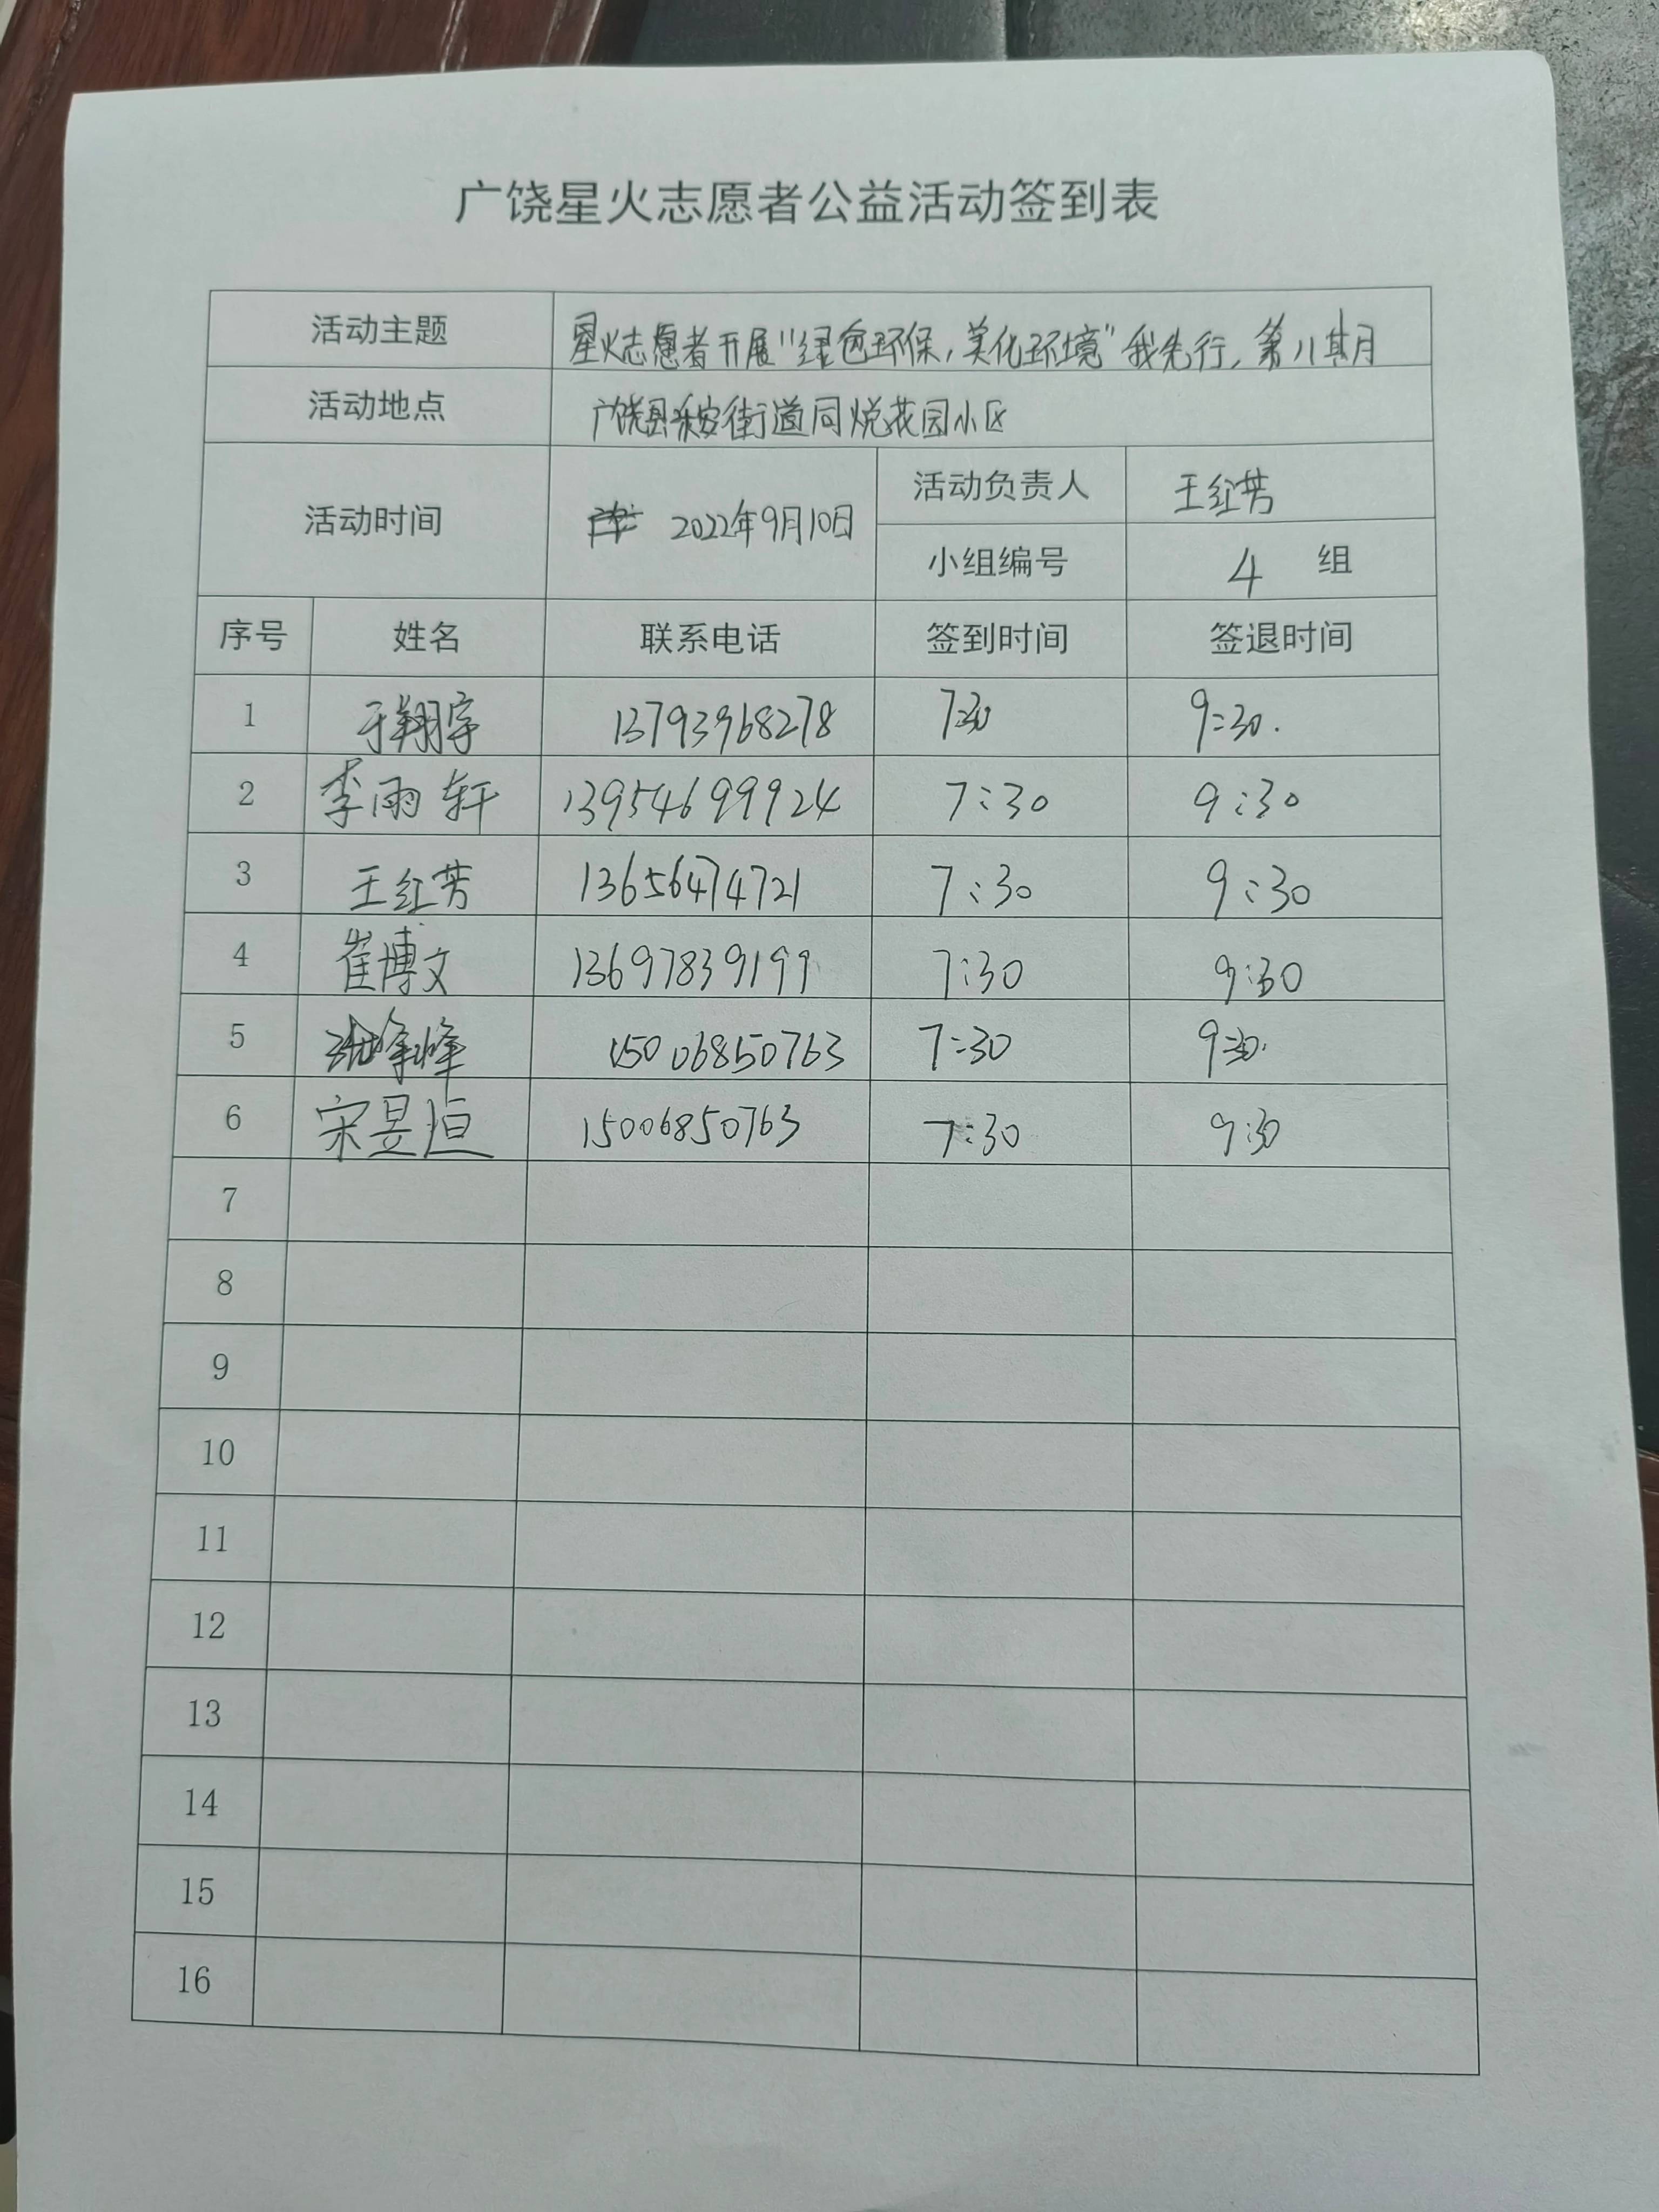 广饶星火志愿者公益活动签到表
活动主题 星火志愿者开展"绿色环保,美化环境"我先行,第八期
活动地点 广饶县乐安街道同悦花园小区
活动时间 2022年9月10日 活动负责人 王红芳
小组编号 4 组
序号 姓名 联系电话 签到时间 签退时间
1 于翔宇 13793968278 7:30 9:30.
2 李雨轩 13954699924 7:30 9:30
3 王红芳 13656474721 7:30 9:30
4 崔博文 13697839199 7:30 9:30
5 峰 15006850763 7:30 9:30.
6 宋昱恒 15006850763 7:30 9:30
7
8
9
10
11
12
13
14
15
16